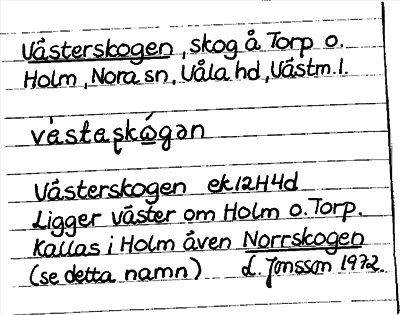 Västerskogen, skog å Torp o.
Holm, Nora sn, Våla hd, Västm. l.
västaʂkógən
Västerskogen ek 12H4d
Ligger väster om Holm o. Torp.
Kallas i Holm även Norrskogen
(se detta namn) L. Jonsson 1972.